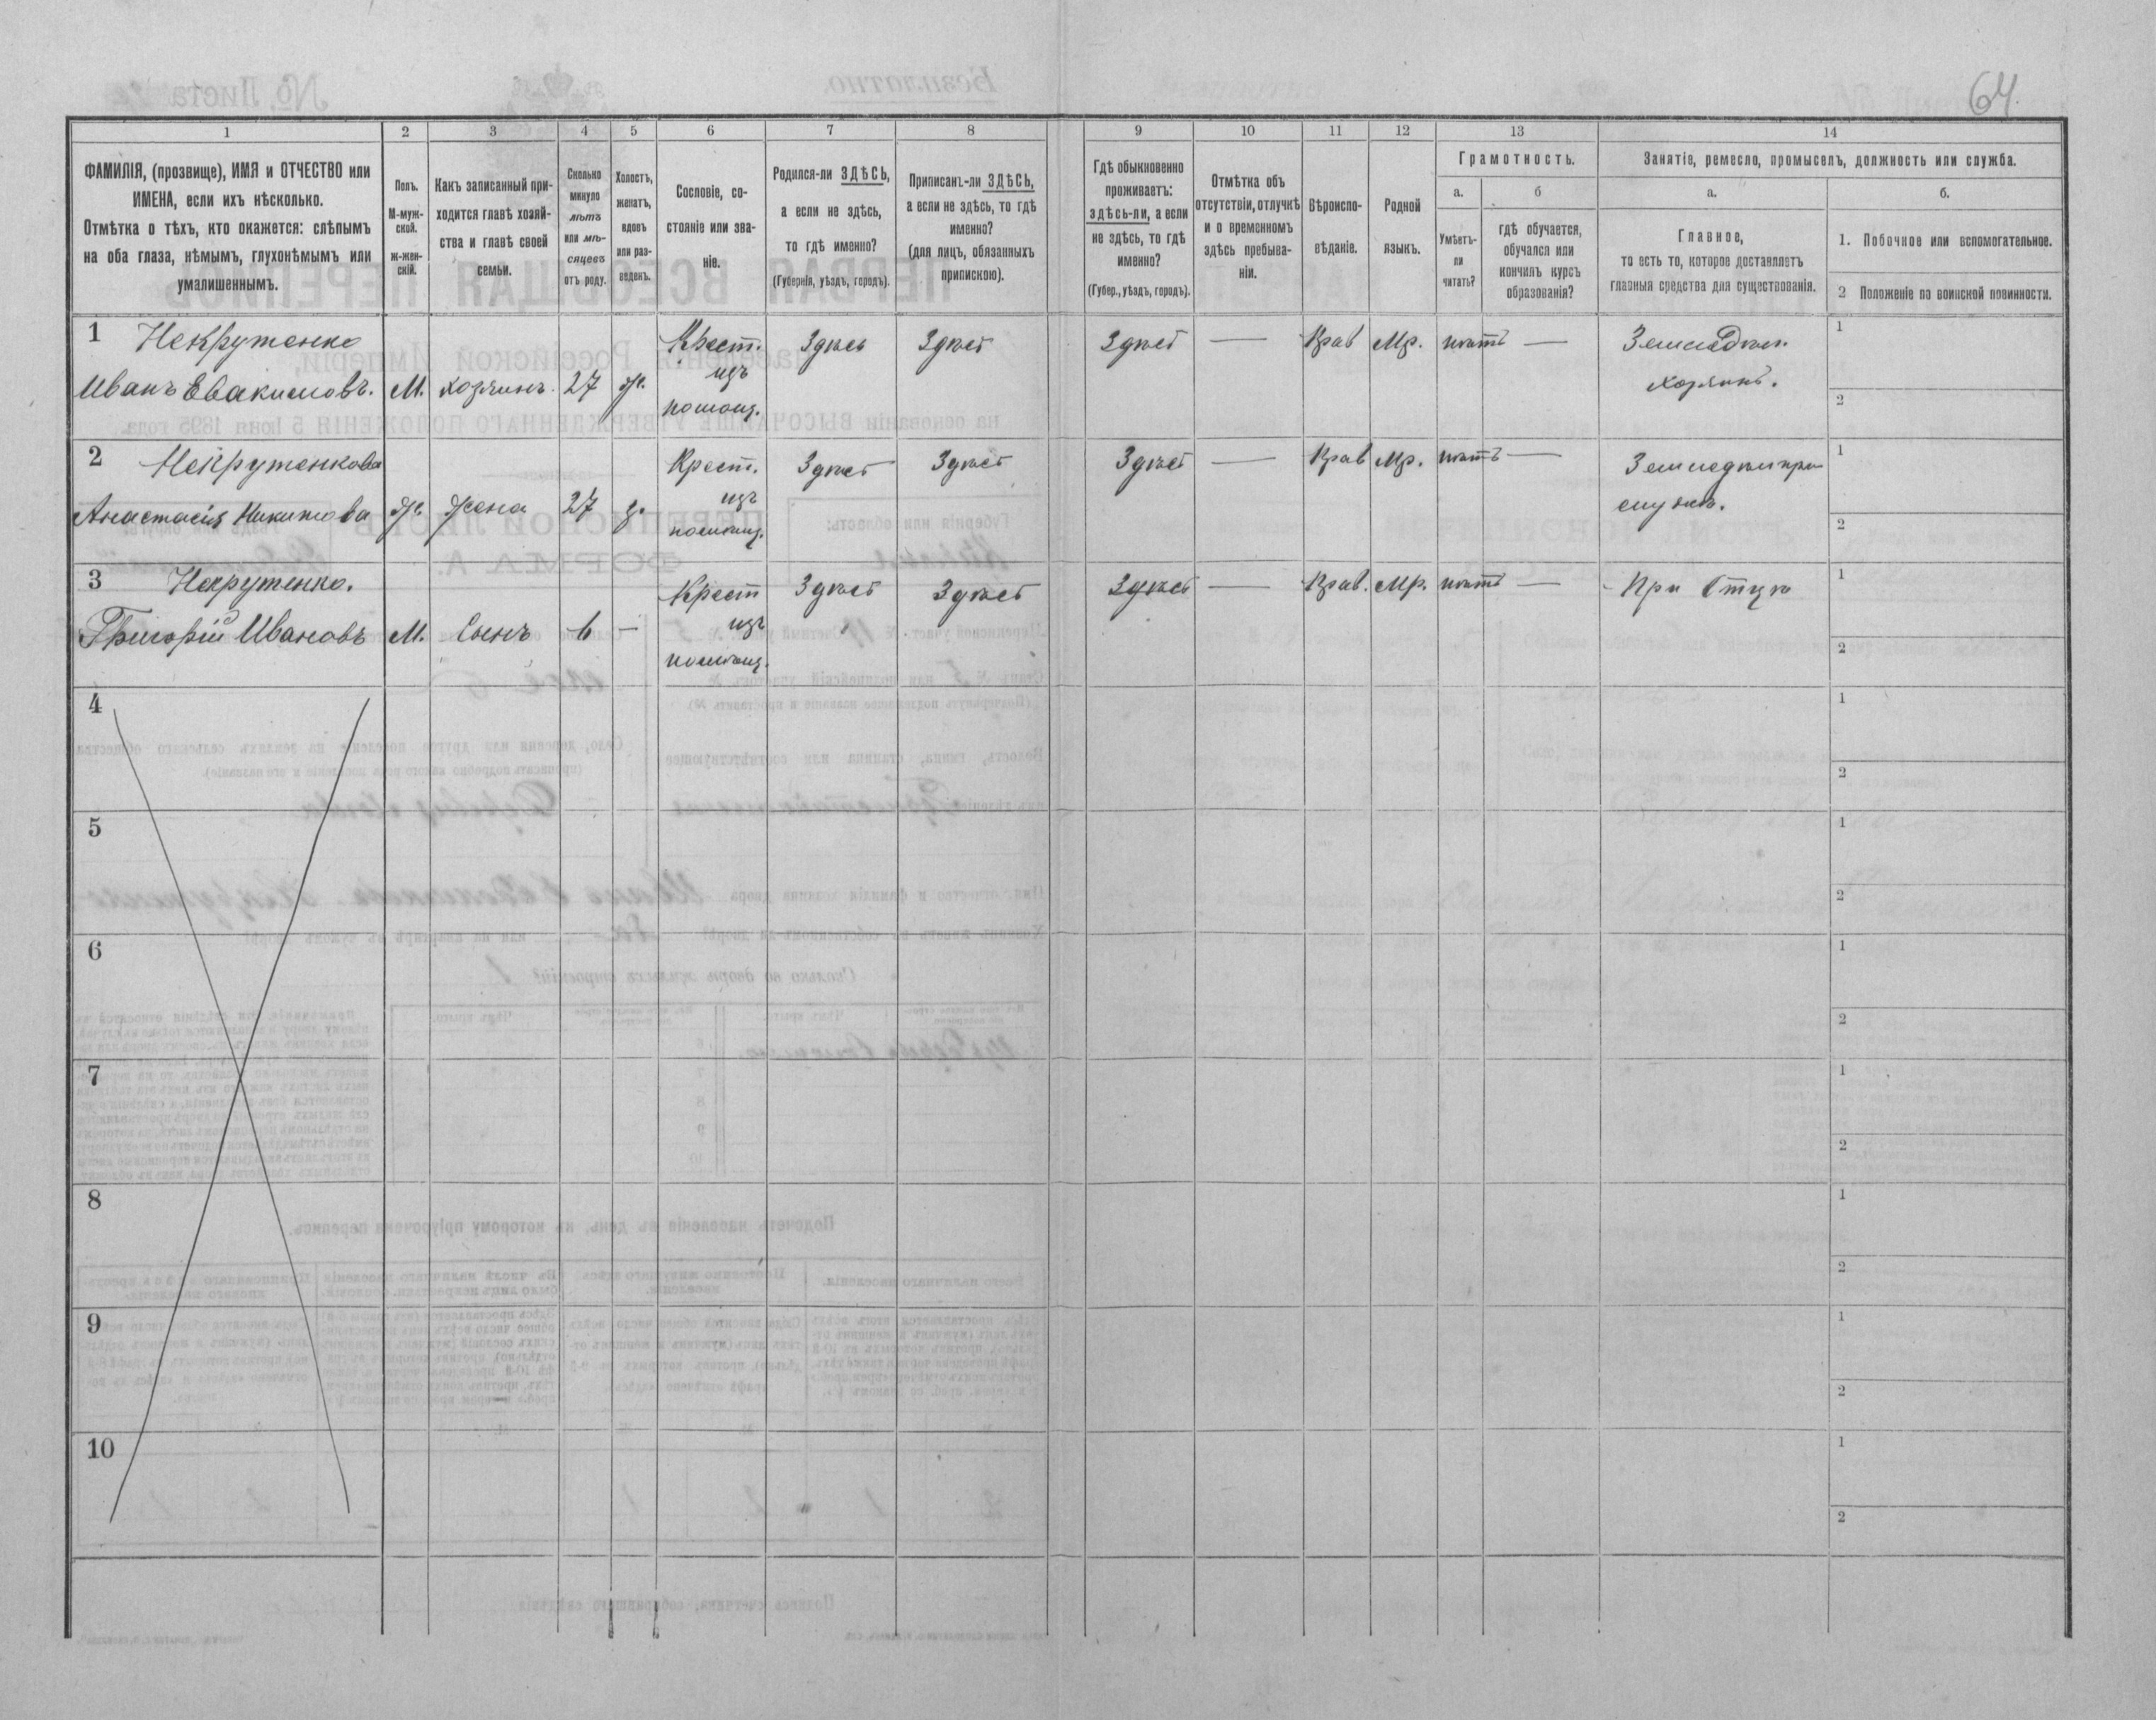 64.
1 2 3 4 5 6 7 8 9 10 11 12 13 14
ФАМИЛІЯ, (прозвище), ИМЯ и ОТЧЕСТВО или
ИМЕНА, если ихъ нѣсколько.
Отмѣтка о тѣхъ, кто окажется: слѣпымъ
на оба глаза, нѣмымъ, глухонѣмымъ или
умалишеннымъ.
Полъ.
М-муж-
ской.
ж-жен-
скій.
Какъ записанный при-
ходится главѣ хозяй-
ства и главѣ своей
семьи.
Сколько
минуло
лѣтъ
или мѣ-
сяцевъ
отъ роду.
Холостъ,
женатъ,
вдовъ
или раз-
веденъ.
Сословіе, со-
стояніе или зва-
ніе.
Родился-ли ЗДѢСЬ,
а если не здѣсь,
то гдѣ именно?
(Губернія, уѣздъ, городъ).
Приписанъ-ли ЗДѢСЬ,
а если не здѣсь, то гдѣ
именно?
(для лицъ, обязанныхъ
припискою).
Гдѣ обыкновенно
проживаетъ:
здѣсь-ли, а если
не здѣсь, то гдѣ
именно?
(Губер., уѣздъ, городъ).
Отмѣтка объ
отсутствіи, отлучкѣ
и о временномъ
здѣсь пребыва-
ніи.
Вѣроиспо-
вѣданіе.
Родной
языкъ.
Грамотность.
а.
Умѣетъ-
ли
читать?
б
гдѣ обучается,
обучался или
кончилъ курсъ
образованія?
Занятіе, ремесло, промыселъ, должность или служба.
а.
Главное,
то есть то, которое доставляетъ
главныя средства для существованія.
б.
1. Побочное или вспомогательное.
2 Положеніе по воинской повинности.
1 Некрутенко Крест. Здѣсь Здѣсь Здѣсь — Прав Мр. нѣтъ — Земледѣл. 1
Иванъ Евакимовъ. М. хозяинъ. 27 ж. изъ хозяинъ. 2
помѣщ.
2 Некрутенкова Крест. Здѣсь Здѣсь Здѣсь — Прав Мр. нѣтъ — Земледѣл при 1
Анастасія Никитова Ж. Жена 27 з. изъ мужѣ. 2
помѣщ.
3 Некрутенко. Крест Здѣсь Здѣсь Здѣсь — Прав. Мр. нѣтъ — При Отцѣ 1
Григорій Ивановъ М. Сынъ 6 — изъ 2
помѣщ.
4 1
2
5 1
2
6 1
2
7 1
2
8 1
2
9 1
2
10 1
2